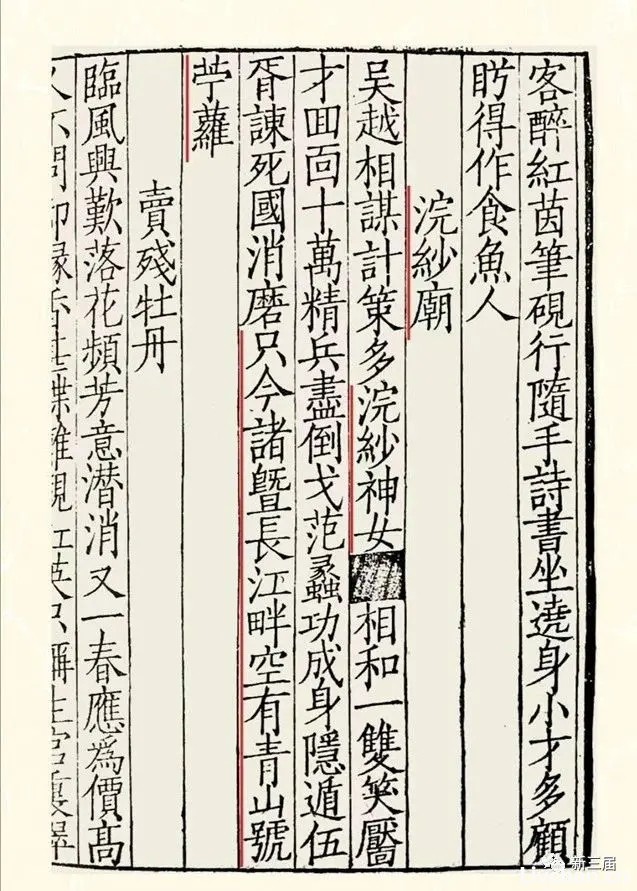 客醉紅茵筆硯行隨手詩書坐遶身小才多顧
盻得作食魚人
浣紗廟
吳越相謀計策多浣紗神女相和一雙笑靨
才囬靣十萬精兵盡倒戈范蠡功成身隱遁伍
胥諫死國消磨只今諸暨長江畔空有青山號
苧蘿
賣殘牡丹
臨風興歎落花頻芳意潜消又一春應為價髙
人不問却緣香甚蝶難親紅英只稱生宮裏翠
新三届